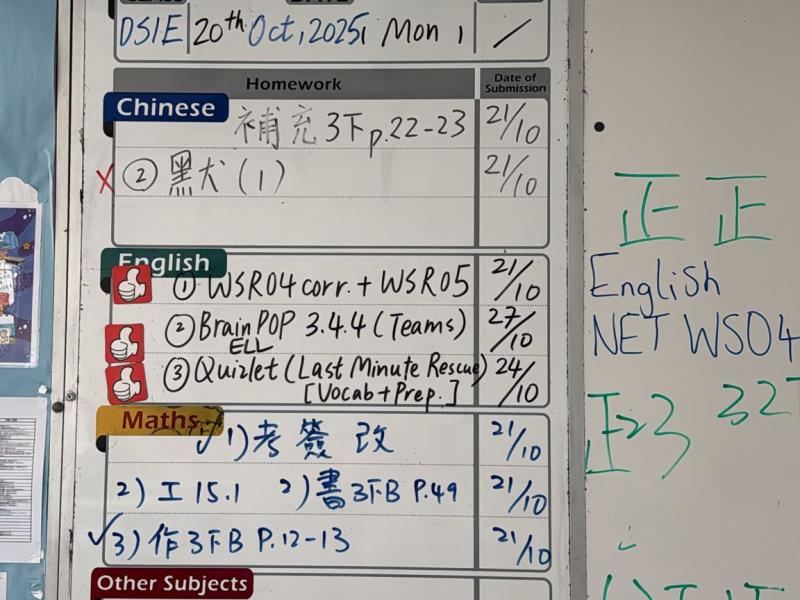 DS1E 20th Oct, 2025, Mon, /
Homework Date of Submission
Chinese
補充3下p.22-23 21/10
x ② 黑犬(1) 21/10
English
① WSR04 corr. + WSR05 21/10
② BrainPOP 3.4.4 (Teams) 27/10
ELL
③ Quizlet (Last Minute Rescue) 24/10
[Vocab+Prep.]
Maths
✓1) 考簽改 21/10
2) 工15.1 2) 書3下B P.49 21/10
✓3) 作3下B P.12-13 21/10
Other Subjects
正 正
English
NET WS04